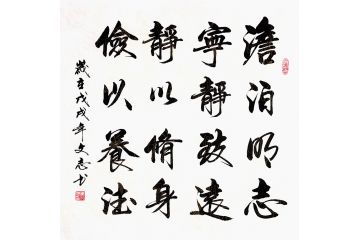 澹泊明志
寧靜致遠
靜以脩身
儉以養德
歲在戊戌年文志书